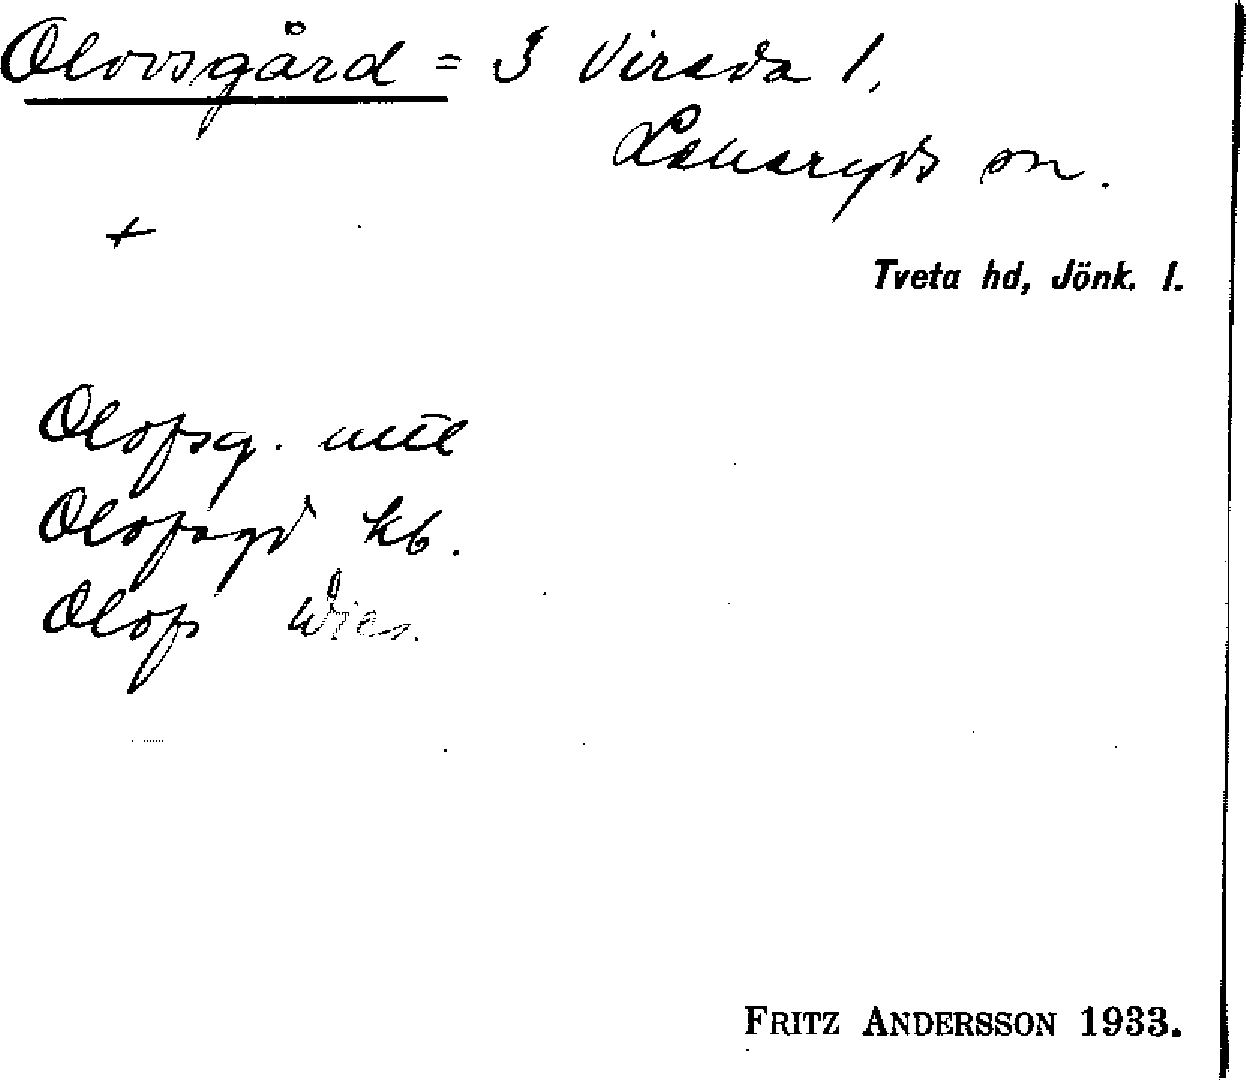 Olovsgård = 3 Virseda 1,
Lekeryds sn.
+
Tveta hd, Jönk. l.
Olofsg. uttl
Olofsgd kb.
Olofs
FRITZ ANDERSSON 1933.